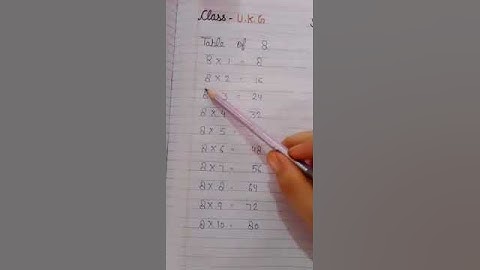 Class - U.K.G
Table of 8
8 × 1 = 8
8 × 2 = 16
8 × 3 = 24
8 × 4 = 32
8 × 5 =
8 × 6 = 48
8 × 7 = 56
8 × 8 = 64
8 × 9 = 72
8 × 10 = 80